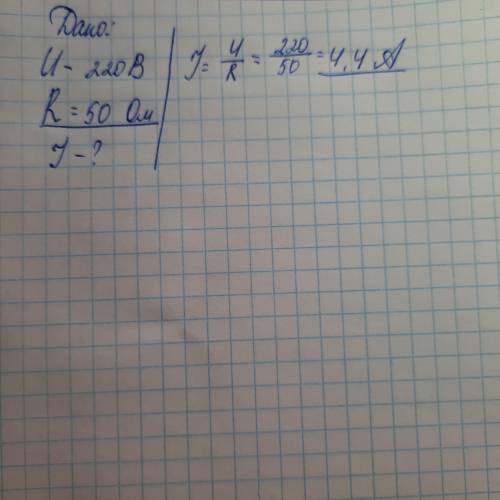 Дано:
U - 220 В
R = 50 Ом
I - ?
I = U/R = 220/50 = 4,4 А